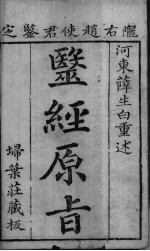 隴右趙使君鑒定
河東薛生白重述
醫經原旨
埽葉莊藏板